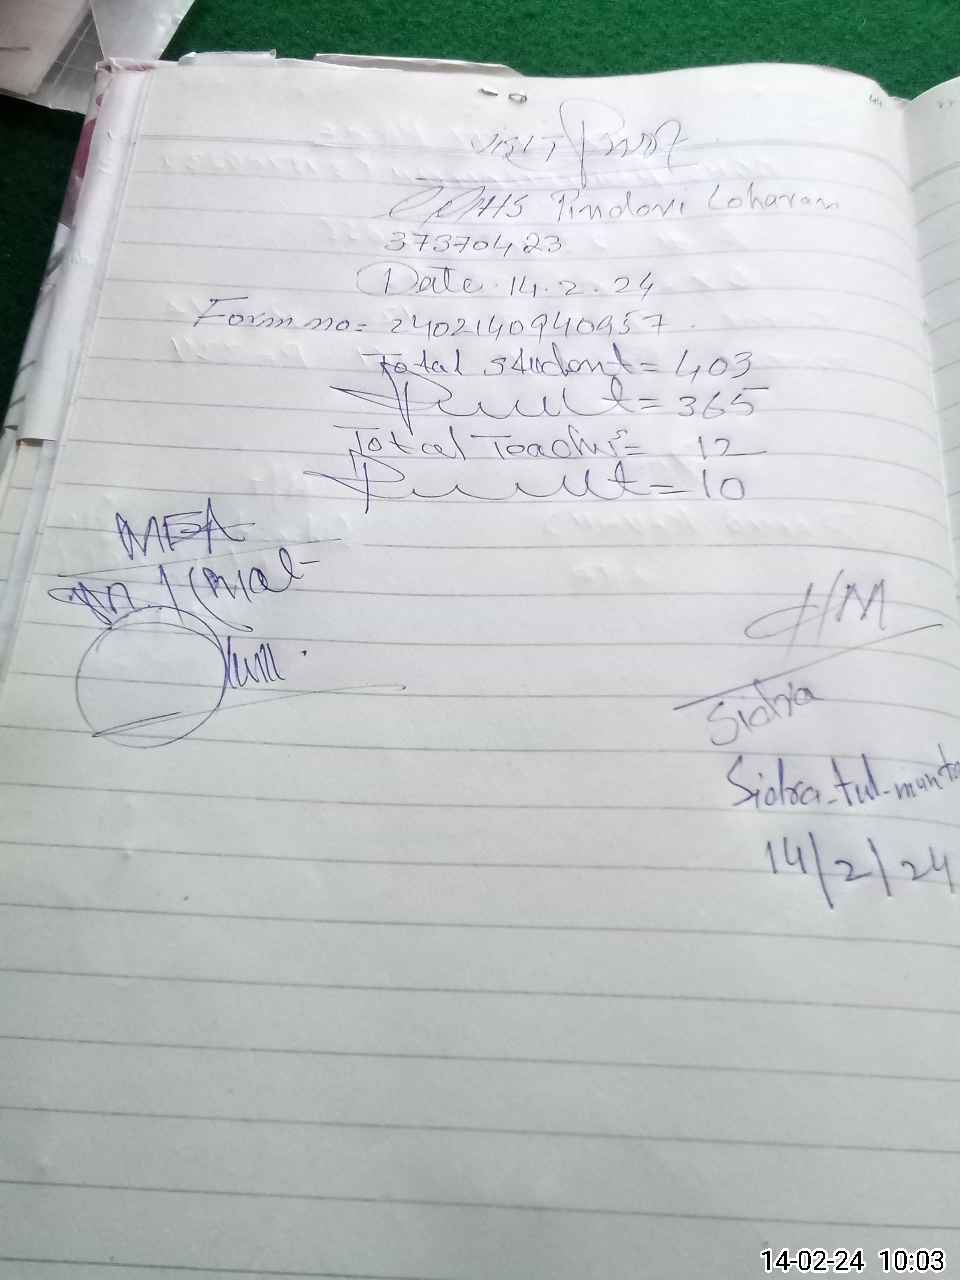 Visit Proof
GGHS Pindori Loharan
37370423
Date. 14.2.24
Form no = 2402140940957
Total student = 403
Present = 365
Total Teacher = 12
Present = 10
MEA
HM
Sidra
Sidra-tul-munta
14/2/24
14-02-24 10:03